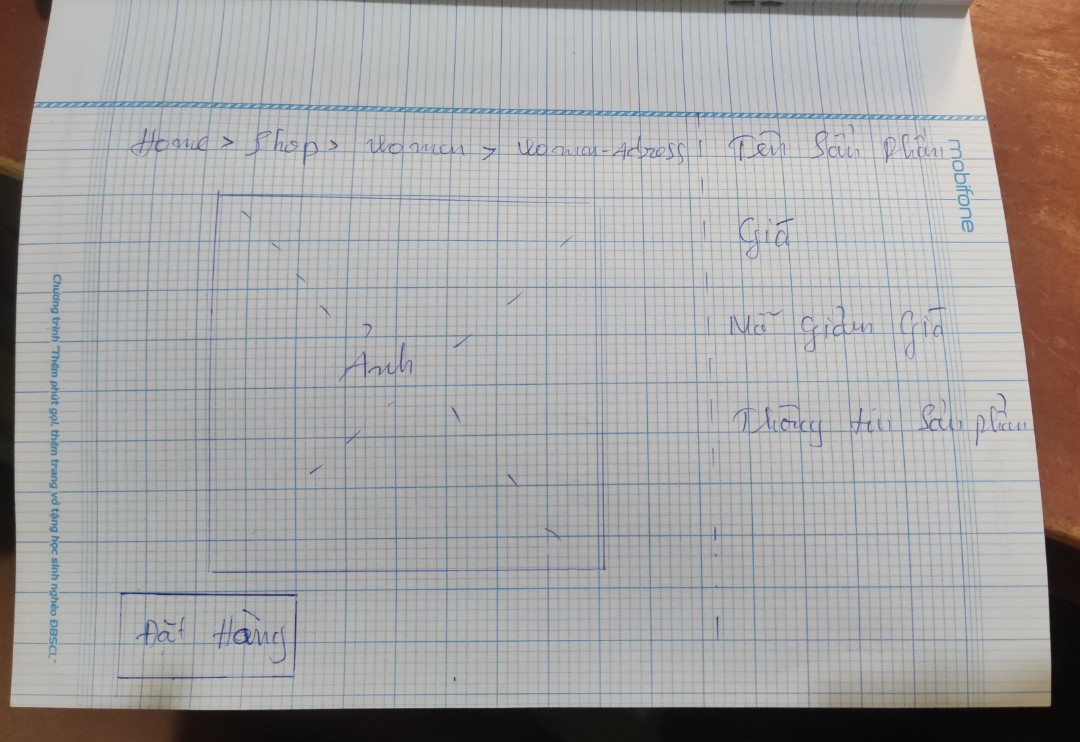 Home > Shop > Women > Women-Adress
Tên Sản phẩm
Giá
Mã giảm Giá
Ảnh
Thông tin Sản phẩm
Đặt Hàng
mobifone
Chương trình "Thêm phút gọi, thêm trang vở tặng học sinh nghèo ĐBSCL"